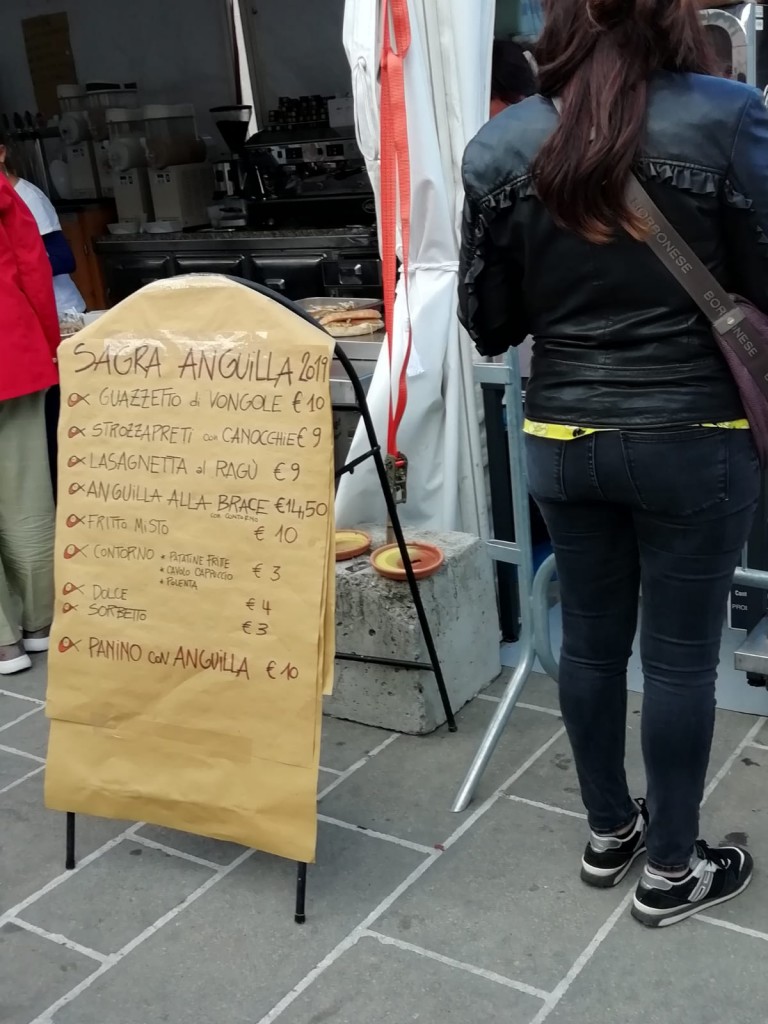 SAGRA ANGUILLA 2019
GUAZZETTO di VONGOLE € 10
STROZZAPRETI con CANOCCHIE € 9
LASAGNETTA al RAGÙ € 9
ANGUILLA ALLA BRACE € 14,50
FRITTO MISTO € 10
CONTORNO • PATATINE FRITTE € 3
• CAVOLO CAPPUCCIO
• POLENTA
DOLCE € 4
SORBETTO € 3
PANINO con ANGUILLA € 10
BORBONESE
BORBONESE